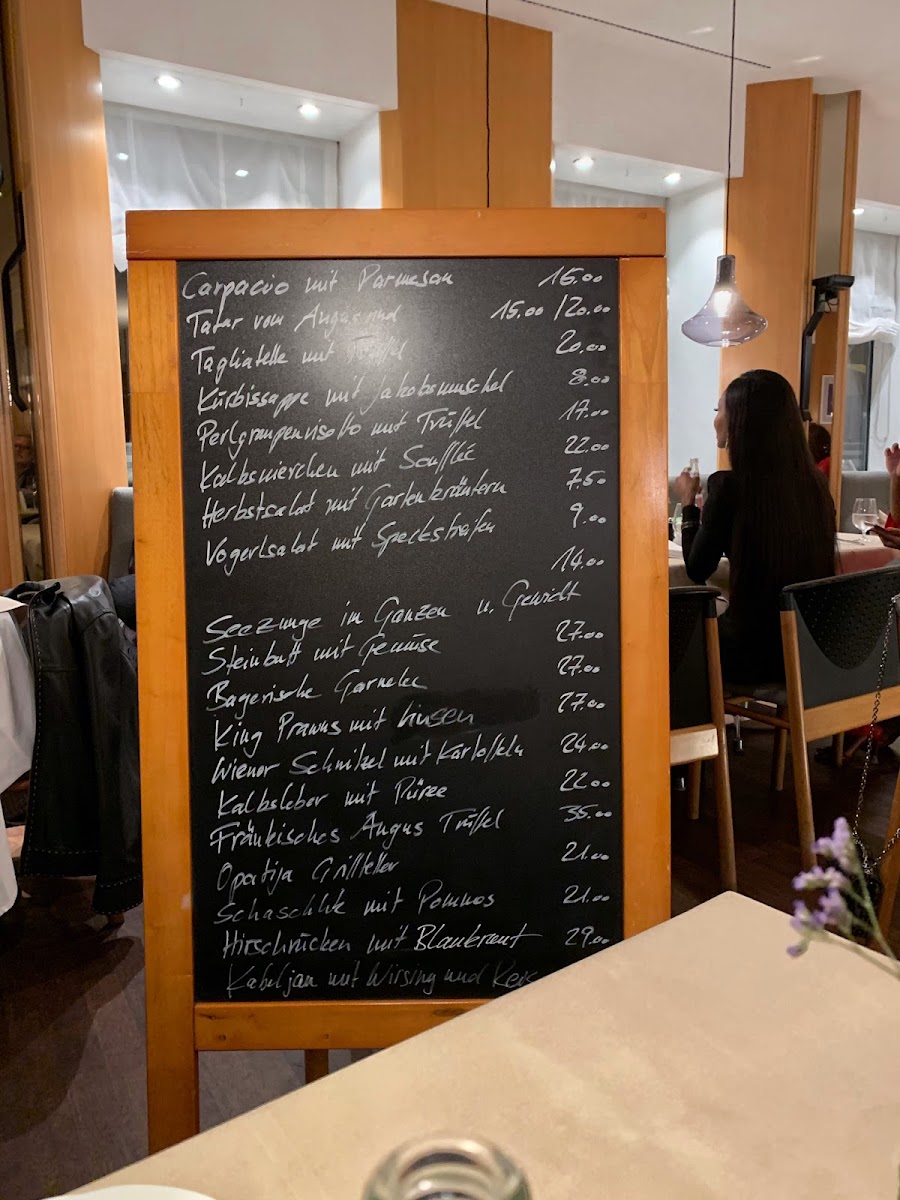 Carpaccio mit Parmesan 16.00
Tatar vom Angusrind 15.00 / 20.00
Tagliatelle mit Trüffel 20.00
Kürbissuppe mit Jakobsmuschel 8.00
Perlgraupenrisotto mit Trüffel 17.00
Kalbsnierchen mit Soufflée 22.00
Herbstsalat mit Gartenkräutern 7.50
Vogerlsalat mit Speckstreifen 9.00
14.00
Seezunge im Ganzen n. Gewicht
Steinbutt mit Gemüse 27.00
Bayerische Garnelen 27.00
King Prawns mit Linsen 27.00
Wiener Schnitzel mit Kartoffeln 24.00
Kalbsleber mit Püree 22.00
Fränkisches Angus Trüffel 35.00
Opatija Grillteller 21.00
Schaschlik mit Pommes 21.00
Hirschrücken mit Blaukraut 29.00
Kabeljau mit Wirsing und Reis